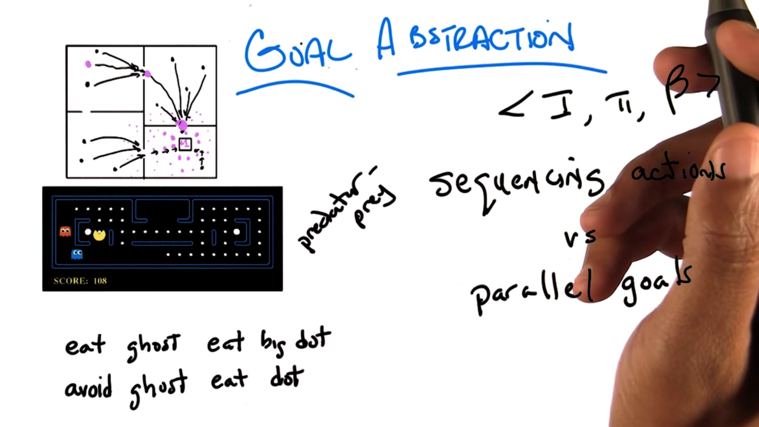 GOAL ABSTRACTION
< I, π, β >
predator-
prey
sequencing actions
vs
parallel goals
SCORE: 108
eat ghost eat big dot
avoid ghost eat dot